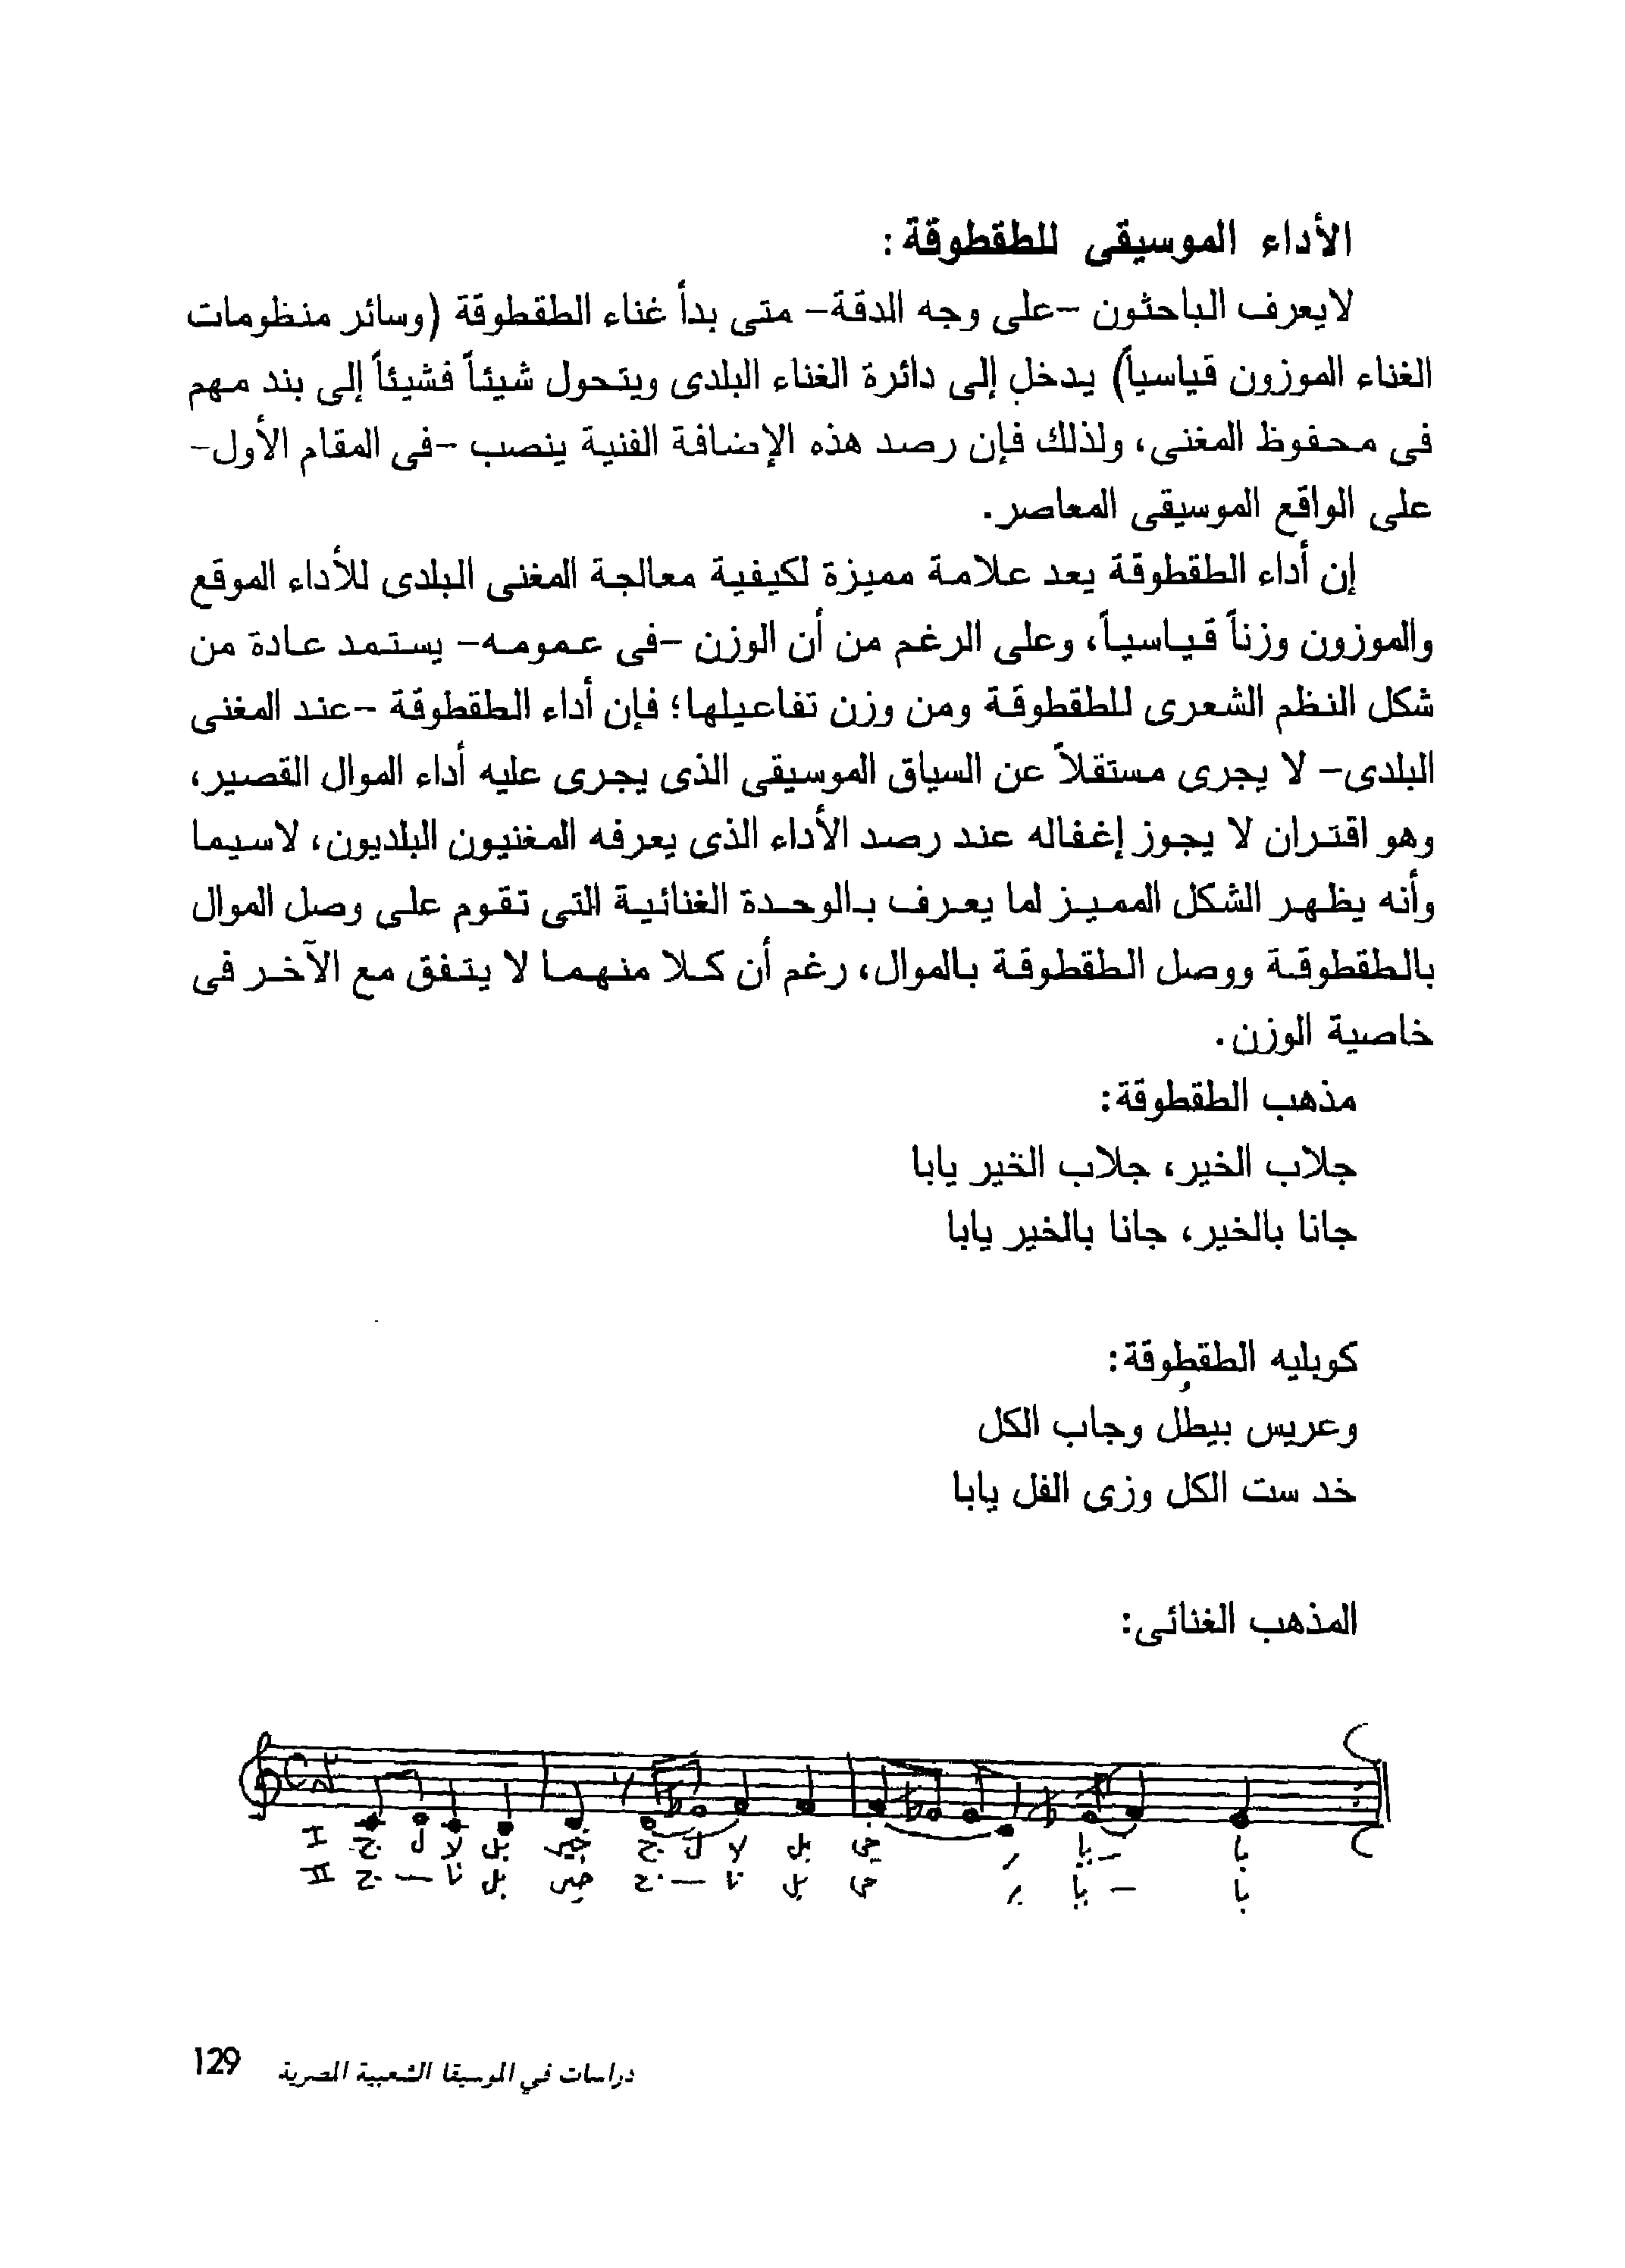 الأداء الموسيقى للطقطوقة:
لايعرف الباحثون -على وجه الدقة- متى بدأ غناء الطقطوقة (وسائر منظومات
الغناء الموزون قياسياً) يدخل إلى دائرة الغناء البلدى ويتحول شيئاً فشيئاً إلى بند مهم
فى محفوظ المغنى، ولذلك فإن رصد هذه الإضافة الفنية ينصب -فى المقام الأول-
على الواقع الموسيقى المعاصر.
إن أداء الطقطوقة يعد علامة مميزة لكيفية معالجة المغنى البلدى للأداء الموقع
والموزون وزناً قياسياً، وعلى الرغم من أن الوزن -فى عمومه- يستمد عادة من
شكل النظم الشعرى للطقطوقة ومن وزن تفاعيلها؛ فإن أداء الطقطوقة -عند المغنى
البلدى- لا يجرى مستقلاً عن السياق الموسيقى الذى يجرى عليه أداء الموال القصير،
وهو اقتران لا يجوز إغفاله عند رصد الأداء الذى يعرفه المغنيون البلديون، لاسيما
وأنه يظهر الشكل المميز لما يعرف بالوحدة الغنائية التى تقوم على وصل الموال
بالطقطوقة ووصل الطقطوقة بالموال، رغم أن كلا منهما لا يتفق مع الآخر فى
خاصية الوزن.
مذهب الطقطوقة:
جلاب الخير، جلاب الخير يابا
جانا بالخير، جانا بالخير يابا
كوبليه الطقطوقة:
وعريس بيطُل وجاب الكل
خد ست الكل وزى الفل يابا
المذهب الغنائى:
I ج ل لا بل خير ج ل لا بل خى ر يا - با
II ج — نا بل خير ج — نا بل خى ر يا — با
دراسات في الموسيقا الشعبية المصرية 129